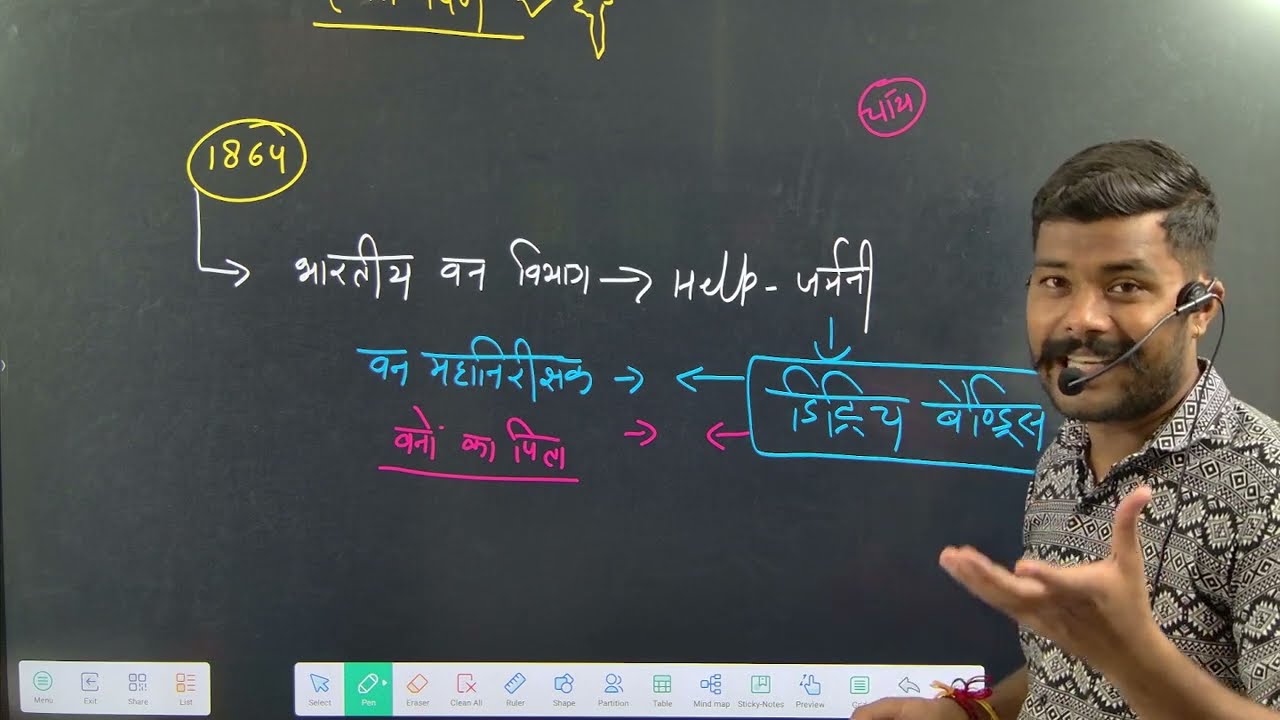 चॉय
1864
भारतीय वन विभाग → Help - जर्मनी
वन महानिरीक्षक → ← डिट्रिच बैण्ड्रिस
वनों का पिता → ←
Menu Exit Share List Select Pen Eraser Clean All Ruler Shape Partition Table Mind map Sticky-Notes Preview